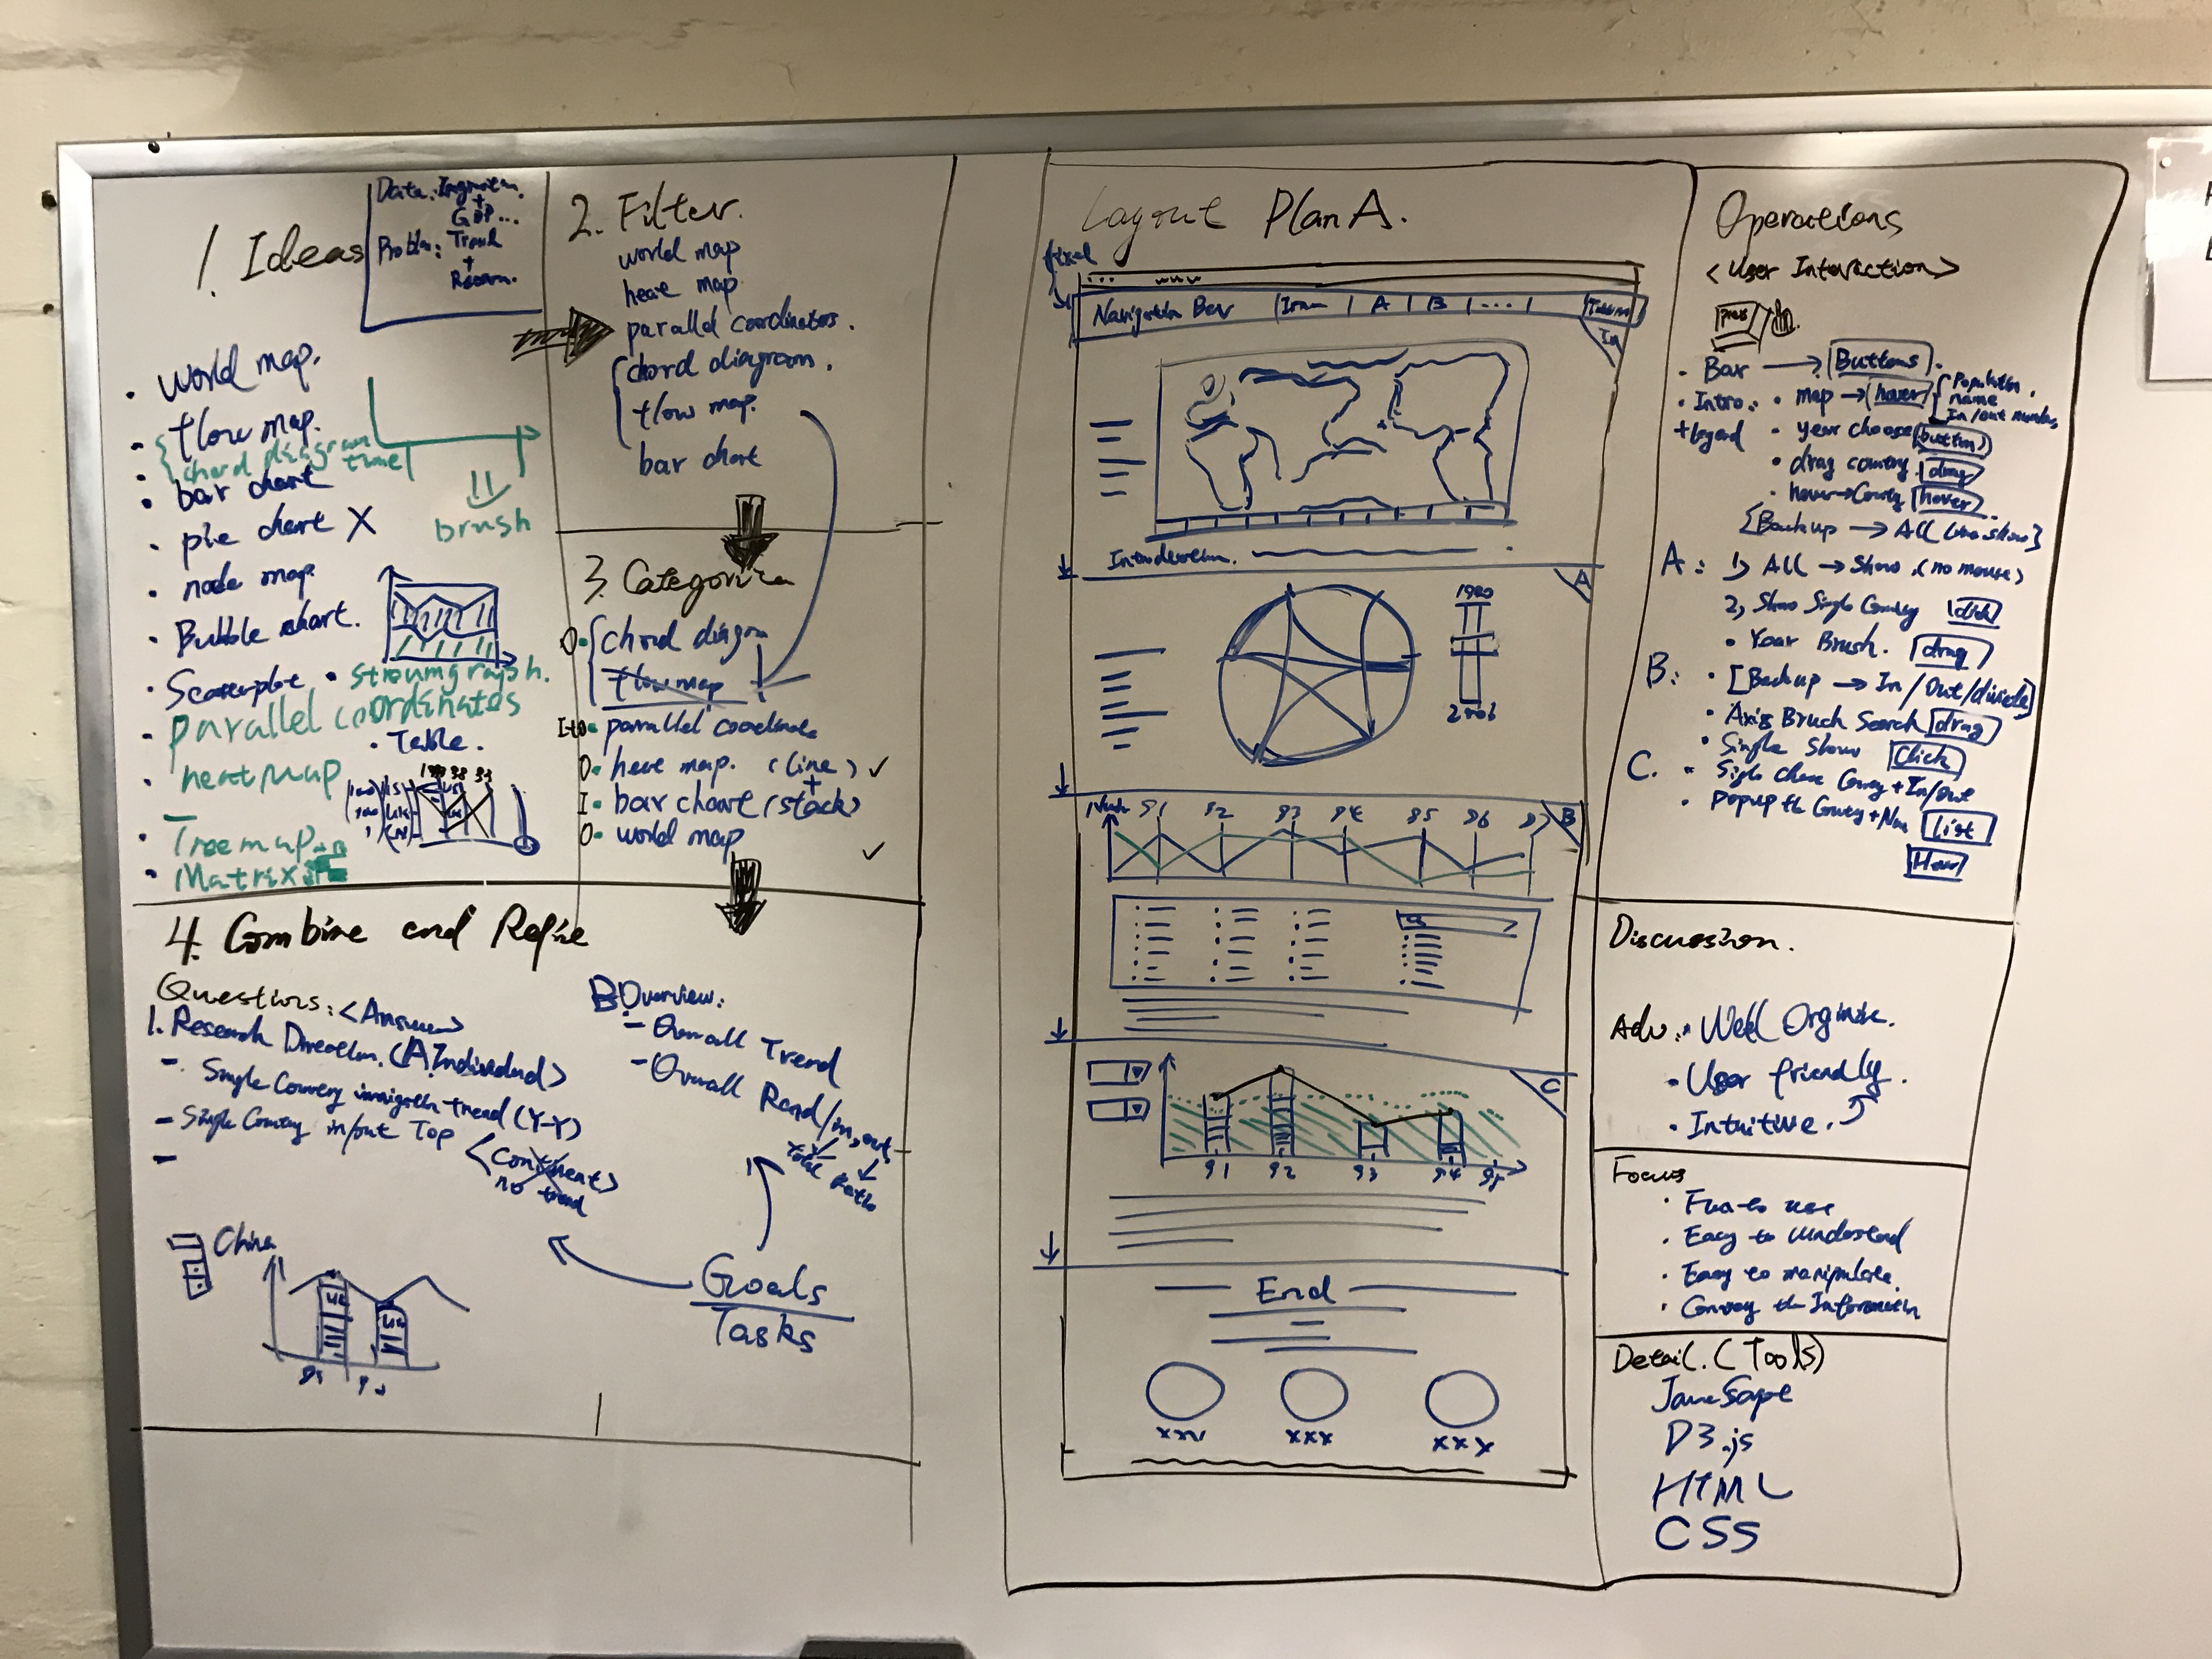 1. Ideas
Data:
+
GDP...
Problem: Trend
+
world map.
flow map.
chord diagram
time
bar chart
brush
pie chart X
node map.
Bubble chart.
Scatterplot
streamgraph.
parallel coordinates
Table.
heatmap
Treemap
Matrix
2. Filter.
world map
heat map
parallel coordinates.
chord diagram.
flow map.
bar chart
3. Categorize
O. chord diagram
flow map
parallel coordinate
O. heat map. (line) ✓
+
I. bar chart (stack)
O. world map
✓
4. Combine and Refine
Questions: <Answer>
1. Research Direction. (A Individual>
- Single Country immigration trend (Y-Y)
- Single Country in/out Top
<Continent>
no trend
B Overview:
- Overall Trend
- Overall Rand/in, out
total ratio
Goals
Tasks
China
Layout Plan A.
fixed
Navigation Bar | | A | B | .... |
In
Introduction.
A
1980
B
91 92 93 94 95 96 97
C
91 92 93 94 95
End
xxx xxx xxx
Operations
<User Interaction>
press
Bar → Buttons.
Intro: • map → hover
Population.
name
In/out number
+legend
• year choose button
• drag country drag
• hover → Country hover
[Backup → All
A: 1) All → Show (no mouse)
2, Show Single Country click
• Year Brush. drag
B: • [Backup → In/Out/divide]
• Axis Brush Search drag
• Single Show Click
C. • Single Country + In/out
• Popup the Country + List
Hover
Discussion.
Adv: • Well Orgnize.
• User friendly.
• Intuitive.
Focus
• use
• Easy to understand
• Easy to manipulate
• Convey the Information
Detail. (Tools)
D3.js
HTML
CSS